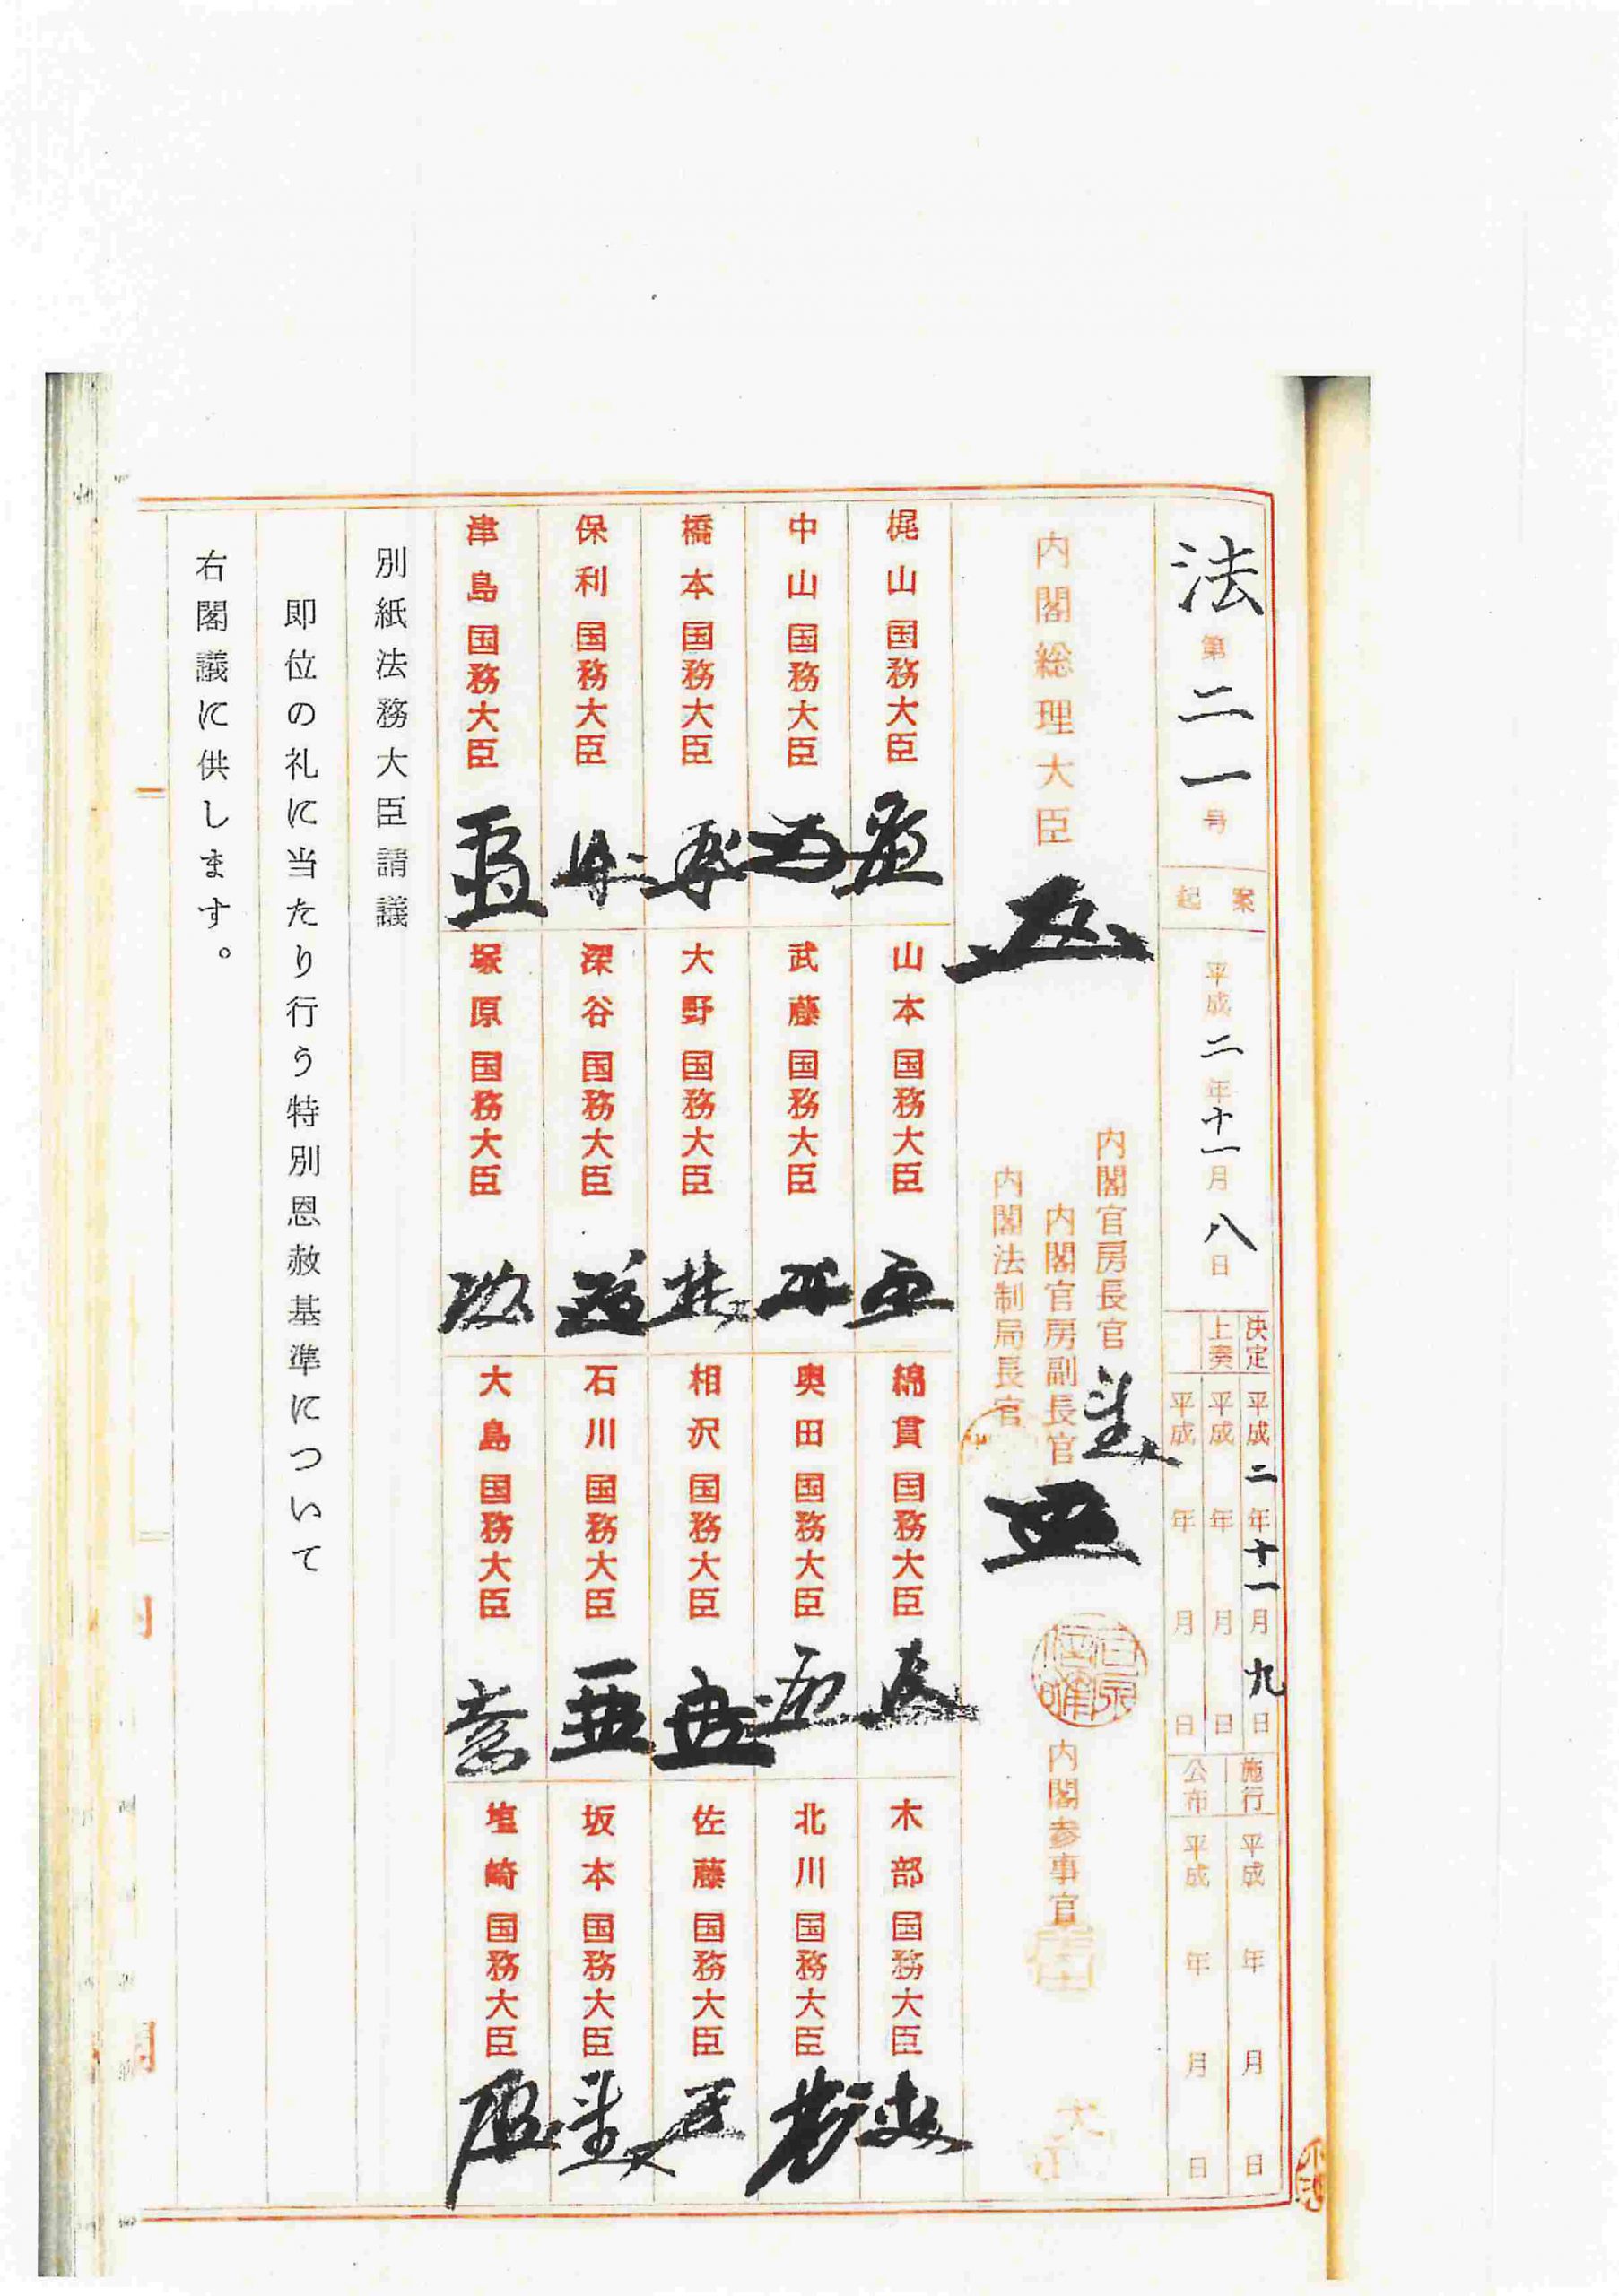 法第二一号
起案
平成二年十一月八日
決定
平成二年十一月九日
上奏
平成 年 月 日
平成 年 月 日
施行
平成 年 月 日
公布
平成 年 月 日
内閣総理大臣
内閣官房長官
内閣官房副長官
内閣法制局長官
内閣参事官
梶山国務大臣
山本国務大臣
綿貫国務大臣
木部国務大臣
中山国務大臣
武藤国務大臣
奥田国務大臣
北川国務大臣
橋本国務大臣
大野国務大臣
相沢国務大臣
佐藤国務大臣
保利国務大臣
深谷国務大臣
石川国務大臣
坂本国務大臣
津島国務大臣
塚原国務大臣
大島国務大臣
塩崎国務大臣
別紙法務大臣請議
即位の礼に当たり行う特別恩赦基準について
右閣議に供します。